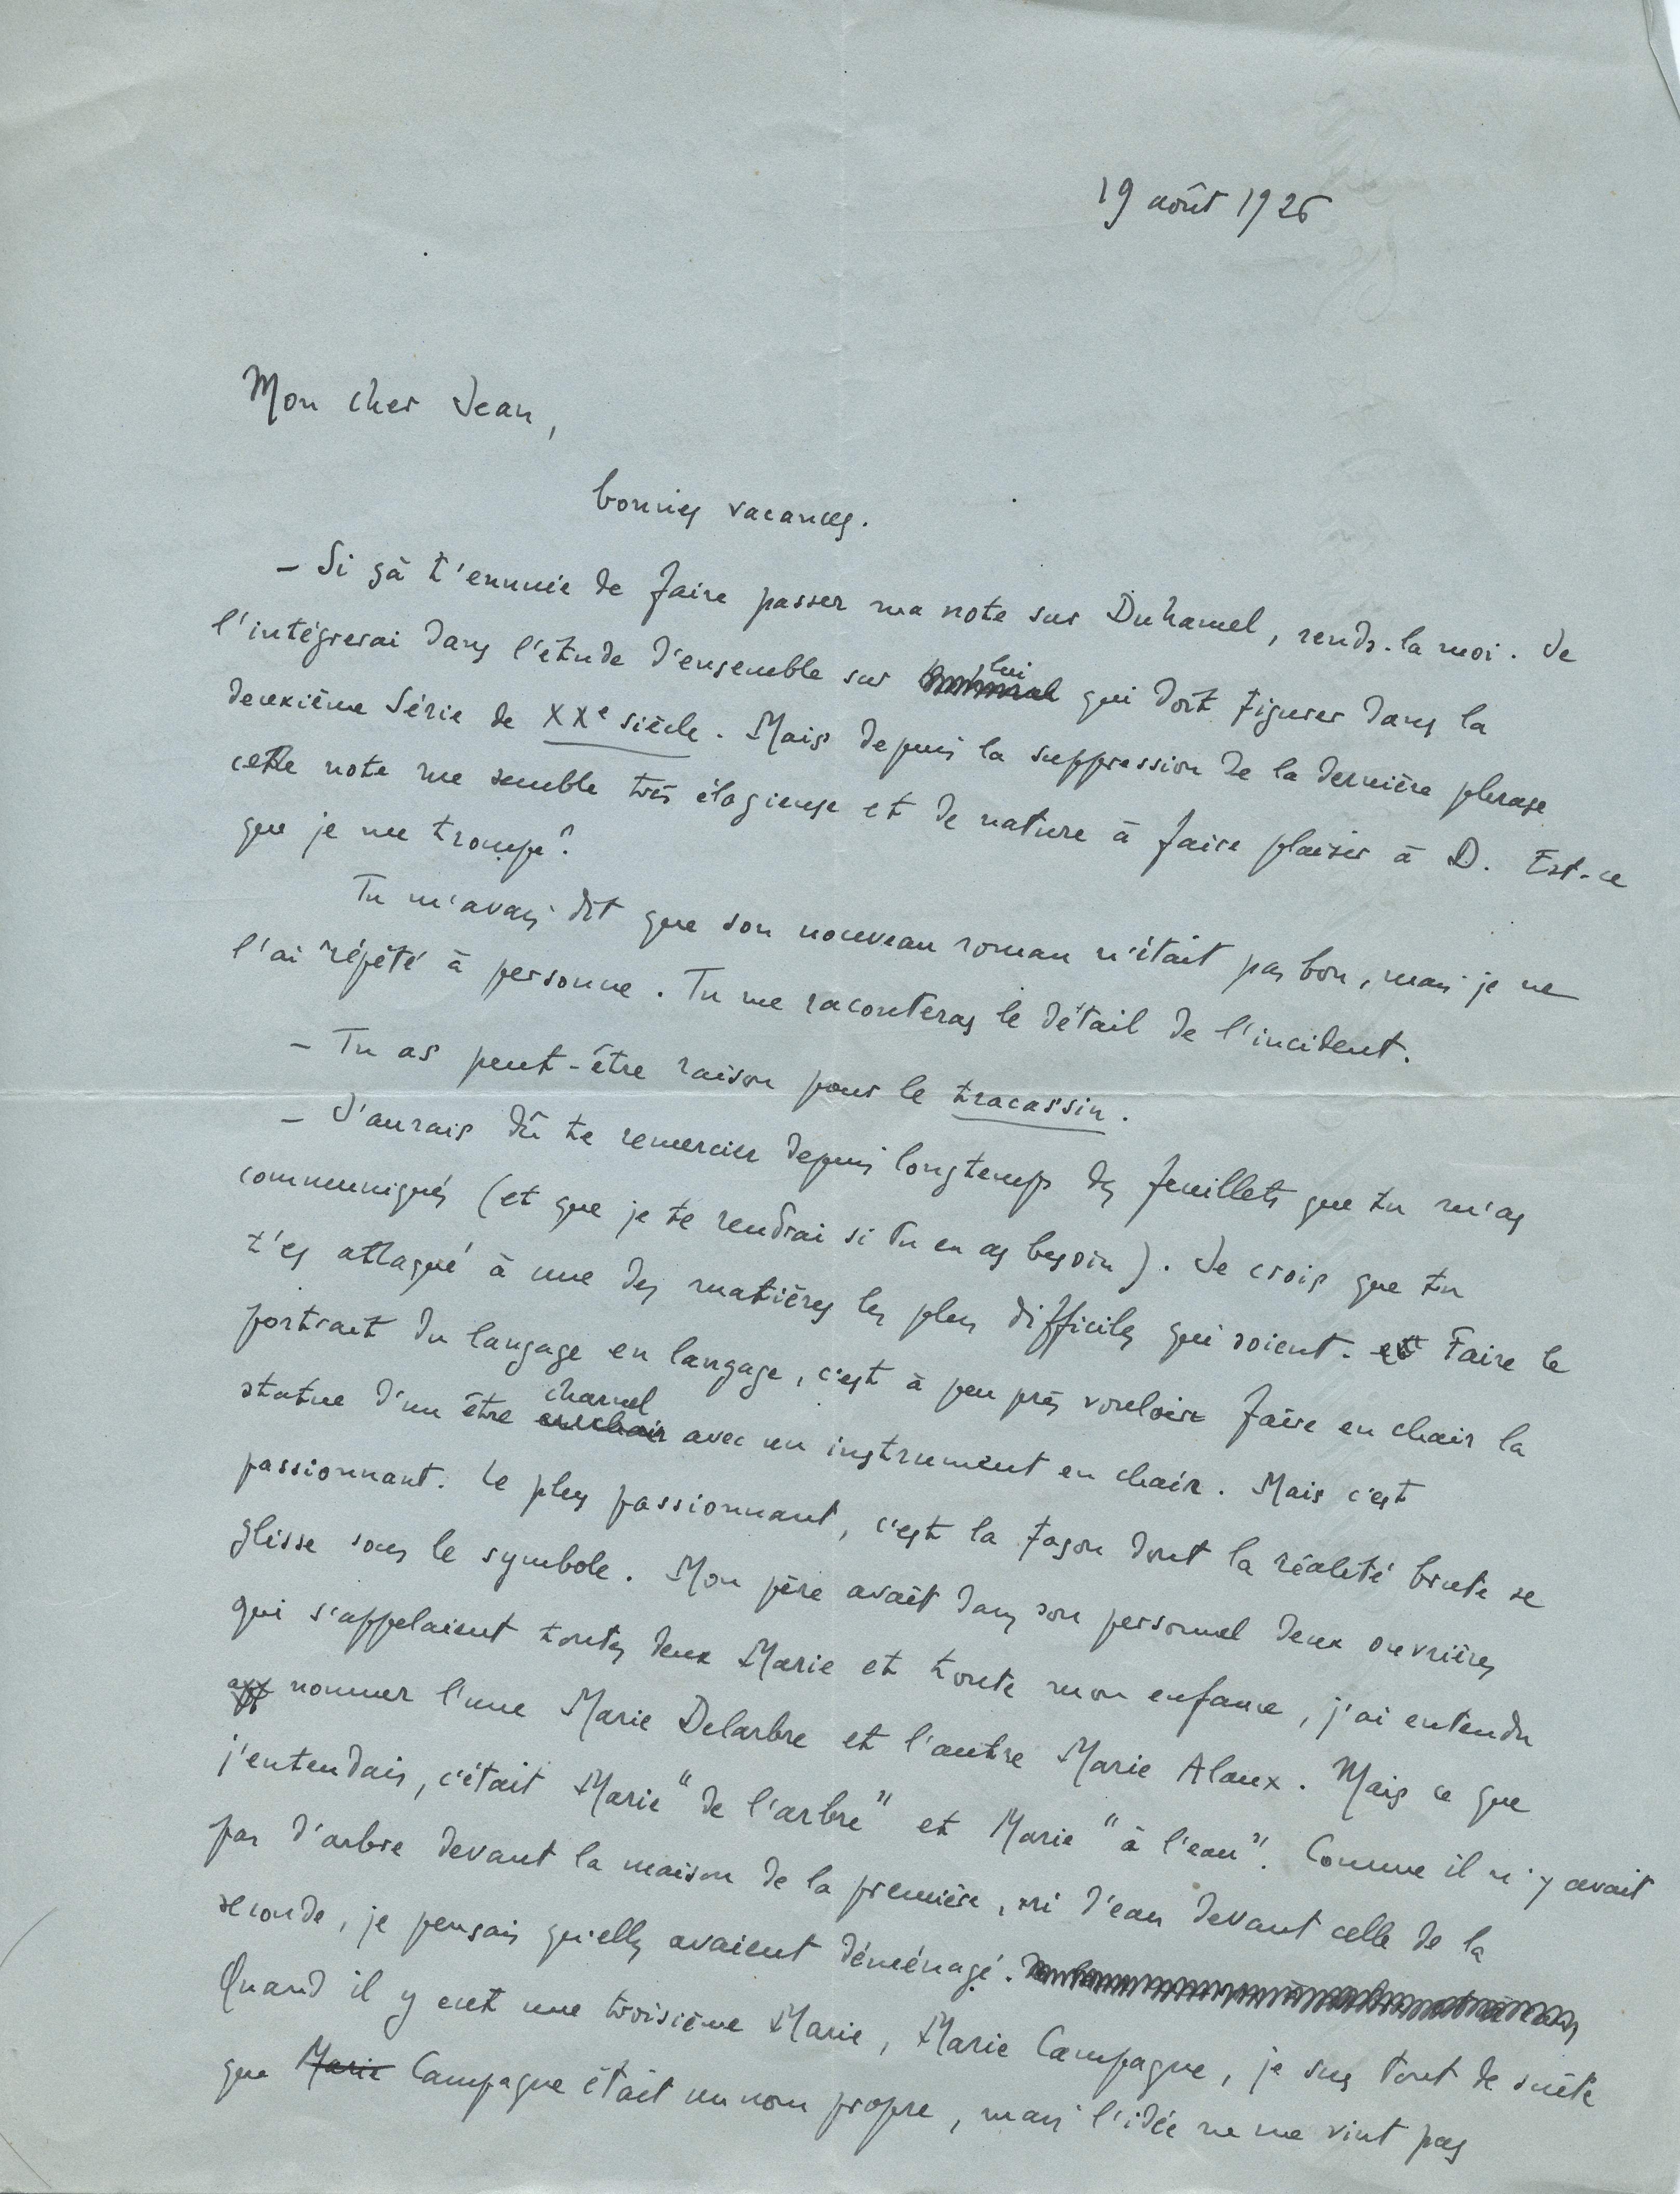 19 août 1926
Mon cher Jean,
bonnes vacances.
– Si çà t'ennuie de faire passer ma note sur Duhamel, rends-la moi. Je
l'intégrerai dans l'étude d'ensemble sur lui qui doit figurer dans la
deuxième Série de XXe siècle. Mais depuis la suppression de la dernière phrase
cette note me semble très élogieuse et de nature à faire plaisir à D. Est-ce
que je me trompe?
Tu m'avais dit que son nouveau roman n'était pas bon, mais je ne
l'ai répété à personne. Tu me raconteras le détail de l'incident.
– Tu as peut-être raison pour le tracassin.
– J'aurais dû te remercier depuis longtemps des feuillets que tu m'as
communiqués (et que je te rendrai si tu en as besoin). Je crois que tu
t'es attaqué à une des matières les plus difficiles qui soient. Faire le
portrait du langage en langage, c'est à peu près vouloir faire en chair la
statue d'un être charnel avec un instrument en chair. Mais c'est
passionnant. Le plus passionnant, c'est la façon dont la réalité brute se
glisse sous le symbole. Mon père avait dans son personnel deux ouvrières
qui s'appelaient toutes deux Marie et toute mon enfance, j'ai entendu
nommer l'une Marie Delarbre et l'autre Marie Alaux. Mais ce que
j'entendais, c'était Marie "de l'arbre" et Marie "à l'eau". Comme il n'y avait
pas d'arbre devant la maison de la première, ni d'eau devant celle de la
seconde, je pensais qu'elles avaient déménagé.
Quand il y eut une troisième Marie, Marie Campagne, je sus tout de suite
que Marie Campagne était un nom propre, mais l'idée ne me vint pas